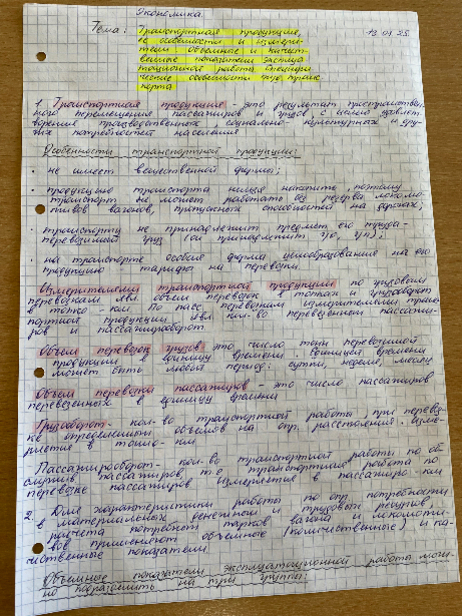 Экономика
Тема: Транспортная продукция,
её особенности и измери-
тели Объемные и качест-
венные показатели эксплуа-
тационной работы Специфи-
ческие особенности транс
порта
1. Транспортная продукция - это результат пространствен-
ного перемещения пассажиров и грузов с целью удовлет-
ворения производственных, социально-культурных и дру-
гих потребностей населения
Особенности транспортной продукции:
· не имеет вещественной формы;
· продукцию транспорта нельзя накопить, поэтому
транспорт не может работать без резерва локомо-
тивов вагонов, пропускных способностей на дорогах;
· транспорту не принадлежит предмет его труда-
перевозимый груз (он принадлежит
· на транспорте особая форма ценообразования на его
продукцию - тарифы на перевозки.
Измерителями транспортной продукции по грузовым
перевозкам явл. объем перевозок в тоннах и грузооборот
в тонно-км. По пасс перевозкам измерителями транс-
портной продукции явл кол-во перевезенных пассажи-
ров и пассажирооборот
Объем перевозок грузов это число тонн перевозимой
продукции в единицу времени. Единицей времени
может быть любой период: сутки, неделя, месяц
Объем перевозок пассажиров - это число пассажиров
перевезенных в единицу времени
Грузооборот- кол-во транспортной работы при перевоз-
ке определенных объемов на опр. расстояния. Изме-
ряется в тонно-км
Пассажирооборот- кол-во транспортной работы по об-
служив пассажиров, т.е транспортная работа по
перевозке пассажиров Измеряется в пассажиро-км
2. Для характеристики работы по опр. потребности
в материальных денежных и трудовых ресурсов,
расчета потребного парков вагона и локомоти-
вов применяют объемные (количественные) и ка-
чественные показатели
Объемные показатели эксплуатационной работы мож-
но подразделить на три группы: